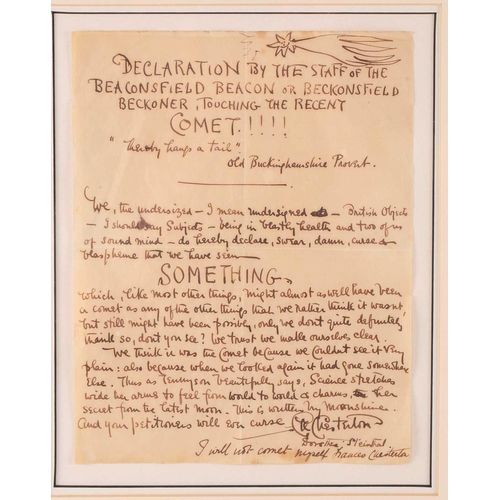 DECLARATION BY THE STAFF OF THE
BEACONSFIELD BEACON OR BECKONSFIELD
BECKONER, TOUCHING THE RECENT
COMET.!!!!
"thereby hangs a tail".
Old Buckinghamshire Proverb.
We, the undersized – I mean undersigned – British Objects
– I should say Subjects – being in beastly health and two of us
of sound mind – do hereby declare, swear, damn, curse &
blaspheme that we have seen
SOMETHING,
which, like most other things, might almost as well have been
a comet as any of the other things that we rather think it wasn't
but still might have been possibly, only we don't quite definitely
think so, don't you see? We trust we make ourselves clear.
– We think it was the Comet because we couldn't see it very
plain: also because when we looked again it had gone somewhere
else. Thus as Tennyson beautifully says, Science stretches
wide her arms to feel from world to world & charms her
secret from the latest moon. This is written by Moonshine.
And your petitioners will ever curse GK Chesterton
Dorothea
I will not comet myself Frances Chesterton